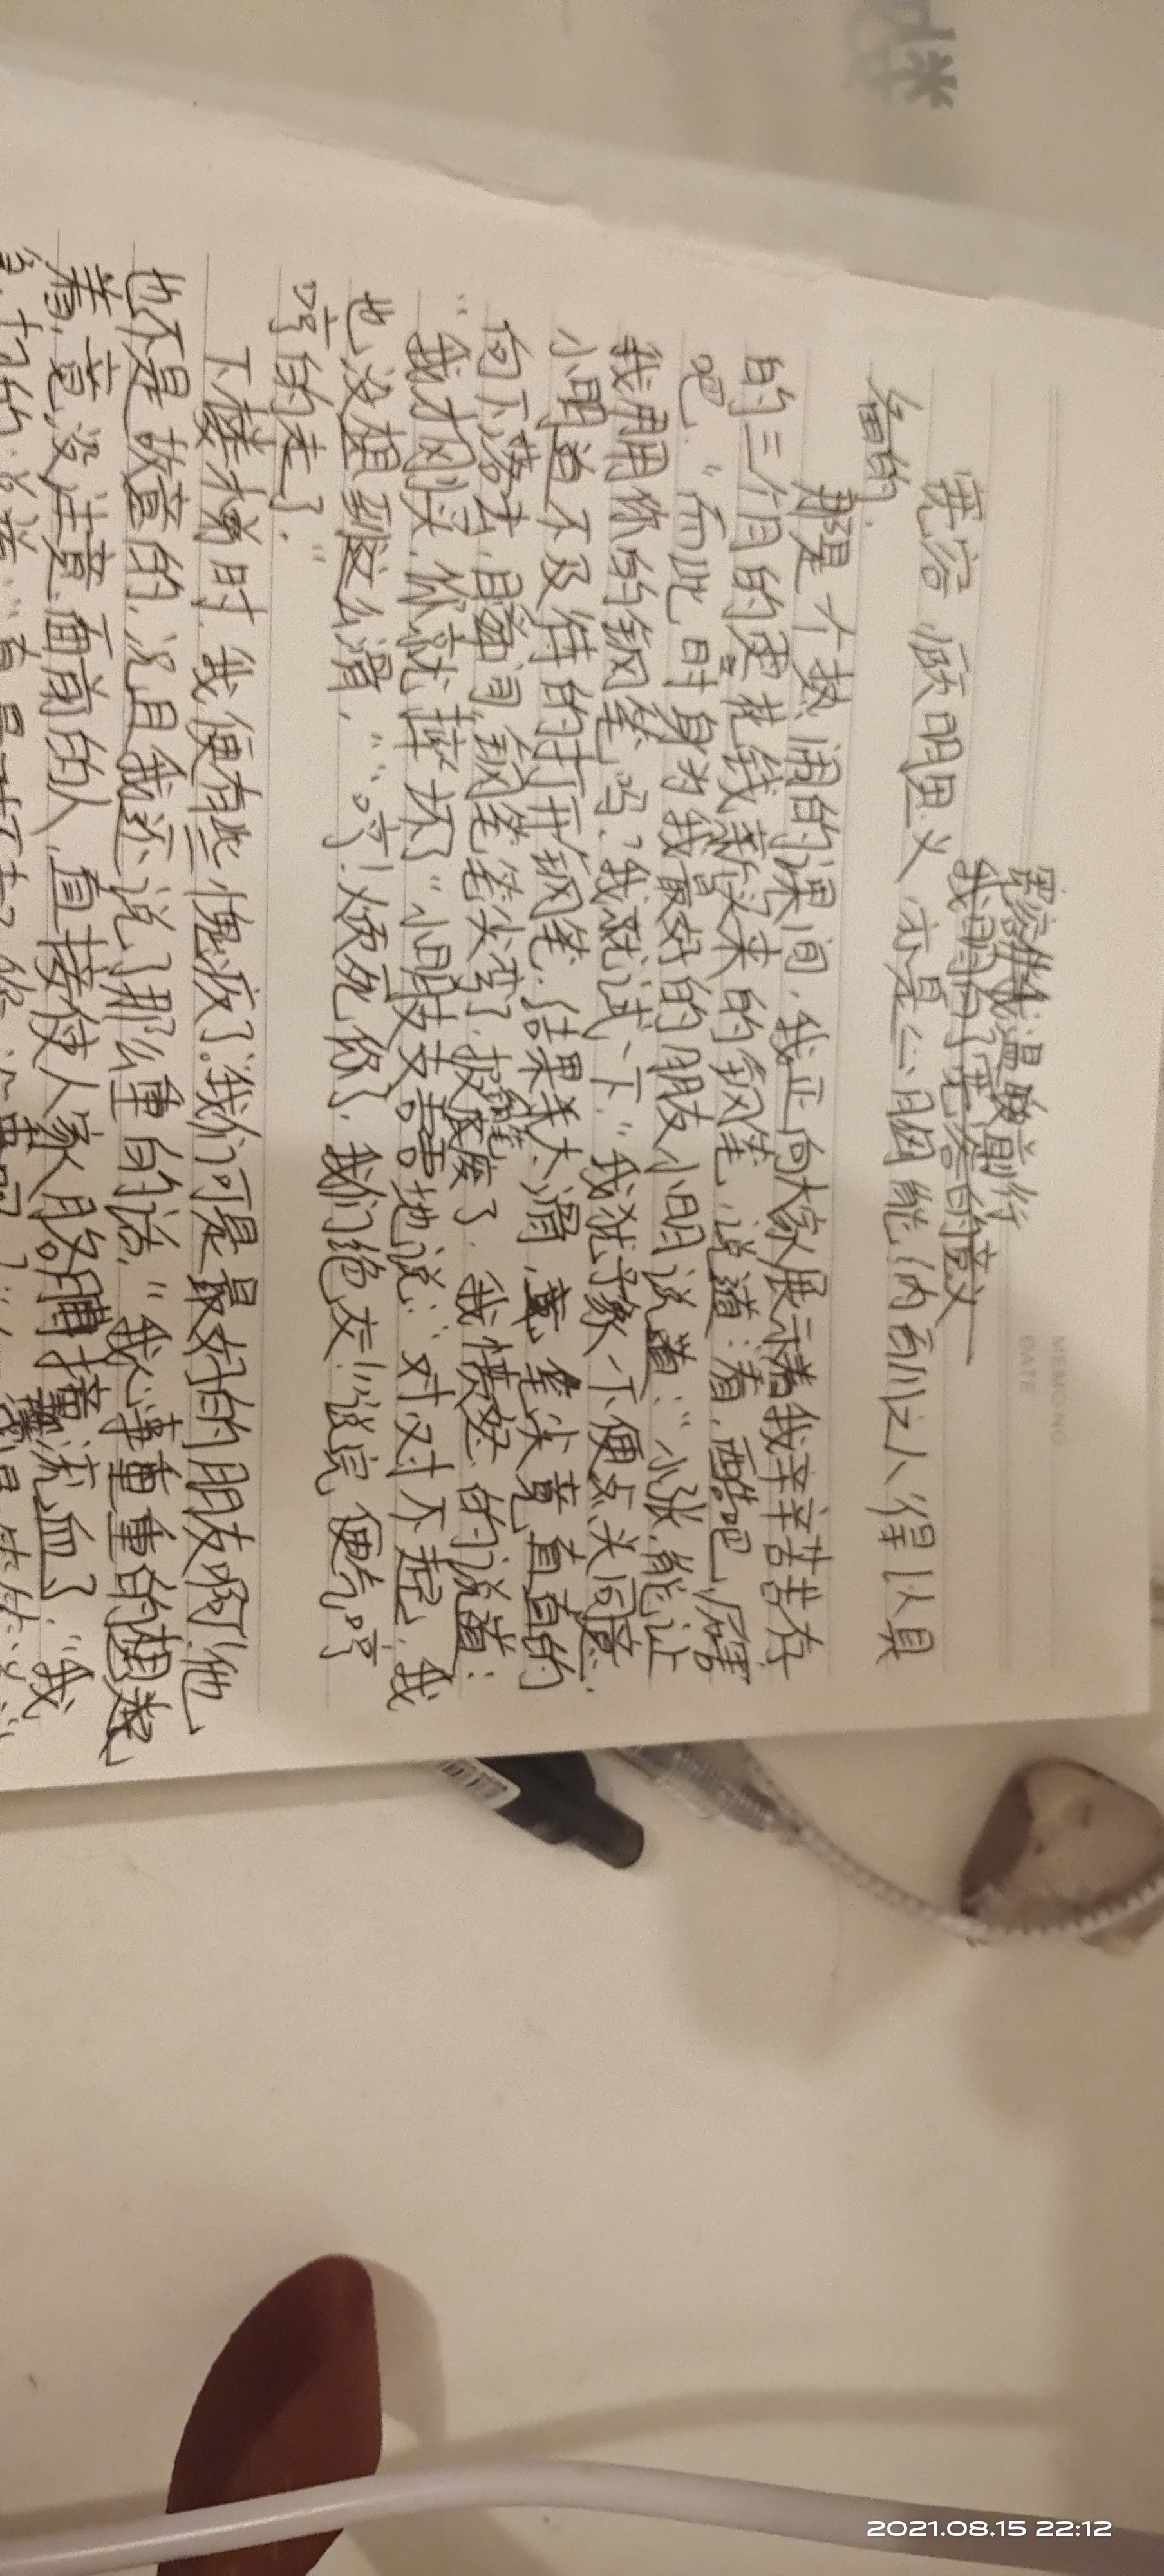 MEMO NO
DATE
宽容伴我温暖前行
我明白了宽容的意义
宽容 顾明思义 亦是心胸能纳百川之人得以具
备的.
那是个热闹的课间.我正向大家展示着我辛辛苦苦存
的三个月的零花钱新买来的钢笔,说道:看,酷吧
吧."而此时身为我最好的朋友小明说道:"小张,能让
我用用你的钢笔吗?我就试一下."我犹豫一下便点头同意.
小明迫不及待的打开钢笔.结果太滑,笔尖竟直直的
向下落去,且瞬间,钢笔笔尖弯了.报废了.我愤怒的说道:
"我才刚买,你就摔坏了"小明支支吾吾地说:"对对不起,我
也没想到这么滑.""哼!烦死你了.我们绝交!"说完便气哼
哼的走了."
下楼梯时,我便有些愧疚了."我们可是最好的朋友啊!他
也不是故意的,况且我还说了那么重的话."我心事重重的想
着,竟没注意面前的人,直接使人家胳膊撞流血了."我
2021.08.15 22:12